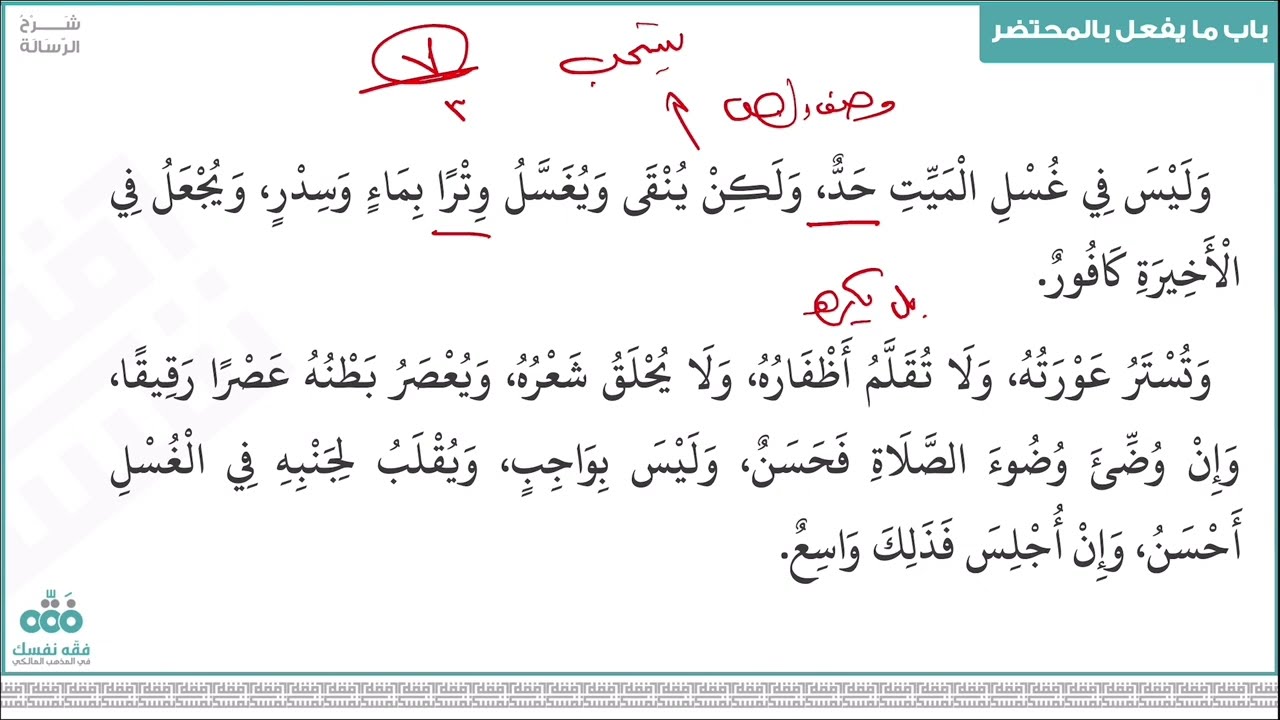 باب ما يفعل بالمحتضر
شَرْحُ
الرِّسَالَة
يستحب
٣
وَلَيْسَ فِي غُسْلِ الْمَيِّتِ حَدٌّ، وَلَكِنْ يُنْقَى وَيُغَسَّلُ وِتْرًا بِمَاءٍ وَسِدْرٍ، وَيُجْعَلُ فِي
الْأَخِيرَةِ كَافُورٌ.
بل يكره
وَتُسْتَرُ عَوْرَتُهُ، وَلَا تُقَلَّمُ أَظْفَارُهُ، وَلَا يُحْلَقُ شَعْرُهُ، وَيُعْصَرُ بَطْنُهُ عَصْرًا رَقِيقًا،
وَإِنْ وُضِّئَ وُضُوءَ الصَّلَاةِ فَحَسَنٌ، وَلَيْسَ بِوَاجِبٍ، وَيُقْلَبُ لِجَنْبِهِ فِي الْغُسْلِ
أَحْسَنُ، وَإِنْ أُجْلِسَ فَذَلِكَ وَاسِعٌ.
فقه نفسك
في المذهب المالكي